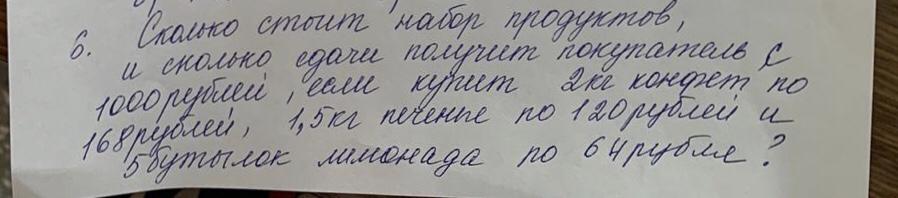 6. Сколько стоит набор продуктов,
и сколько сдачи получит покупатель с
1000 рублей, если купит 2кг конфет по
168 рублей, 1,5кг печенье по 120 рублей и
5 бутылок лимонада по 64 рубля?